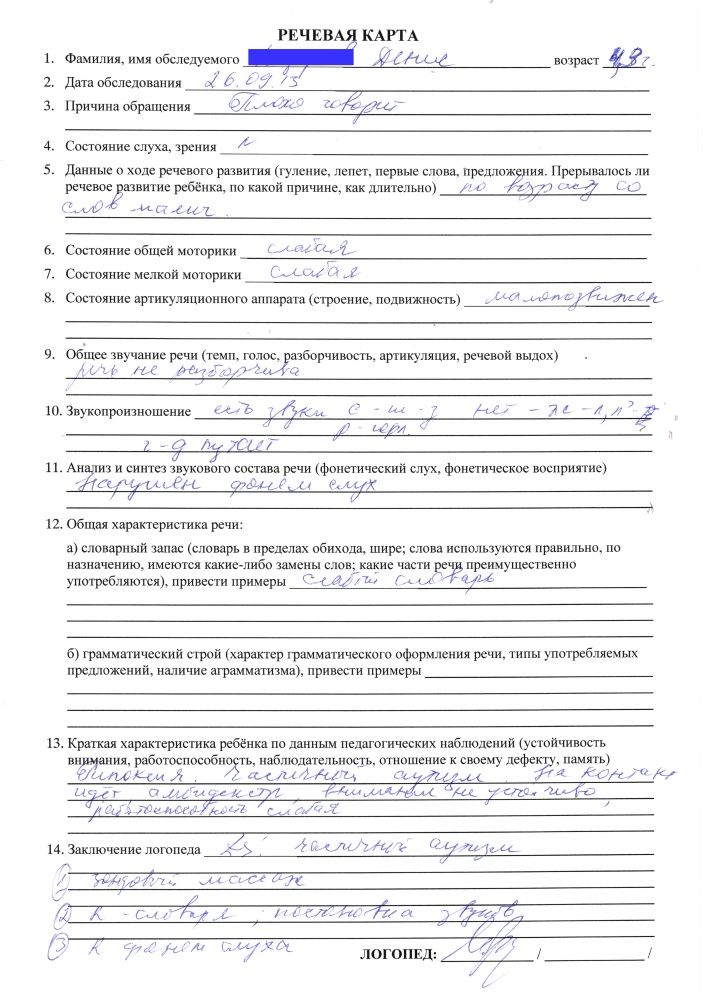 РЕЧЕВАЯ КАРТА
1. Фамилия, имя обследуемого Денис возраст
2. Дата обследования 26.09.13
3. Причина обращения Плохо говорит
4. Состояние слуха, зрения N
5. Данные о ходе речевого развития (гуление, лепет, первые слова, предложения. Прерывалось ли
речевое развитие ребёнка, по какой причине, как длительно) по возрасту со
слов
6. Состояние общей моторики слабая
7. Состояние мелкой моторики слабая
8. Состояние артикуляционного аппарата (строение, подвижность) малоподвижен
9. Общее звучание речи (темп, голос, разборчивость, артикуляция, речевой выдох)
речь не разборчива
10. Звукопроизношение есть звуки с-ш-з нет - ж-л, л'
р-горл.
г-д путает
11. Анализ и синтез звукового состава речи (фонетический слух, фонетическое восприятие)
Нарушен фонем слух
12. Общая характеристика речи:
а) словарный запас (словарь в пределах обихода, шире; слова используются правильно, по
назначению, имеются какие-либо замены слов; какие части речи преимущественно
употребляются), привести примеры слабый словарь
б) грамматический строй (характер грамматического оформления речи, типы употребляемых
предложений, наличие аграмматизма), привести примеры
13. Краткая характеристика ребёнка по данным педагогических наблюдений (устойчивость
внимания, работоспособность, наблюдательность, отношение к своему дефекту, память)
Гипоксия. Частичный аутизм. На контакт
идёт, амбидекстр, внимание не устойчиво,
работоспособность слабая
14. Заключение логопеда Ds: частичный аутизм
1 зондовый массаж
2 К -словаря, постановка звуков
3 К фонем слуха
ЛОГОПЕД: / /